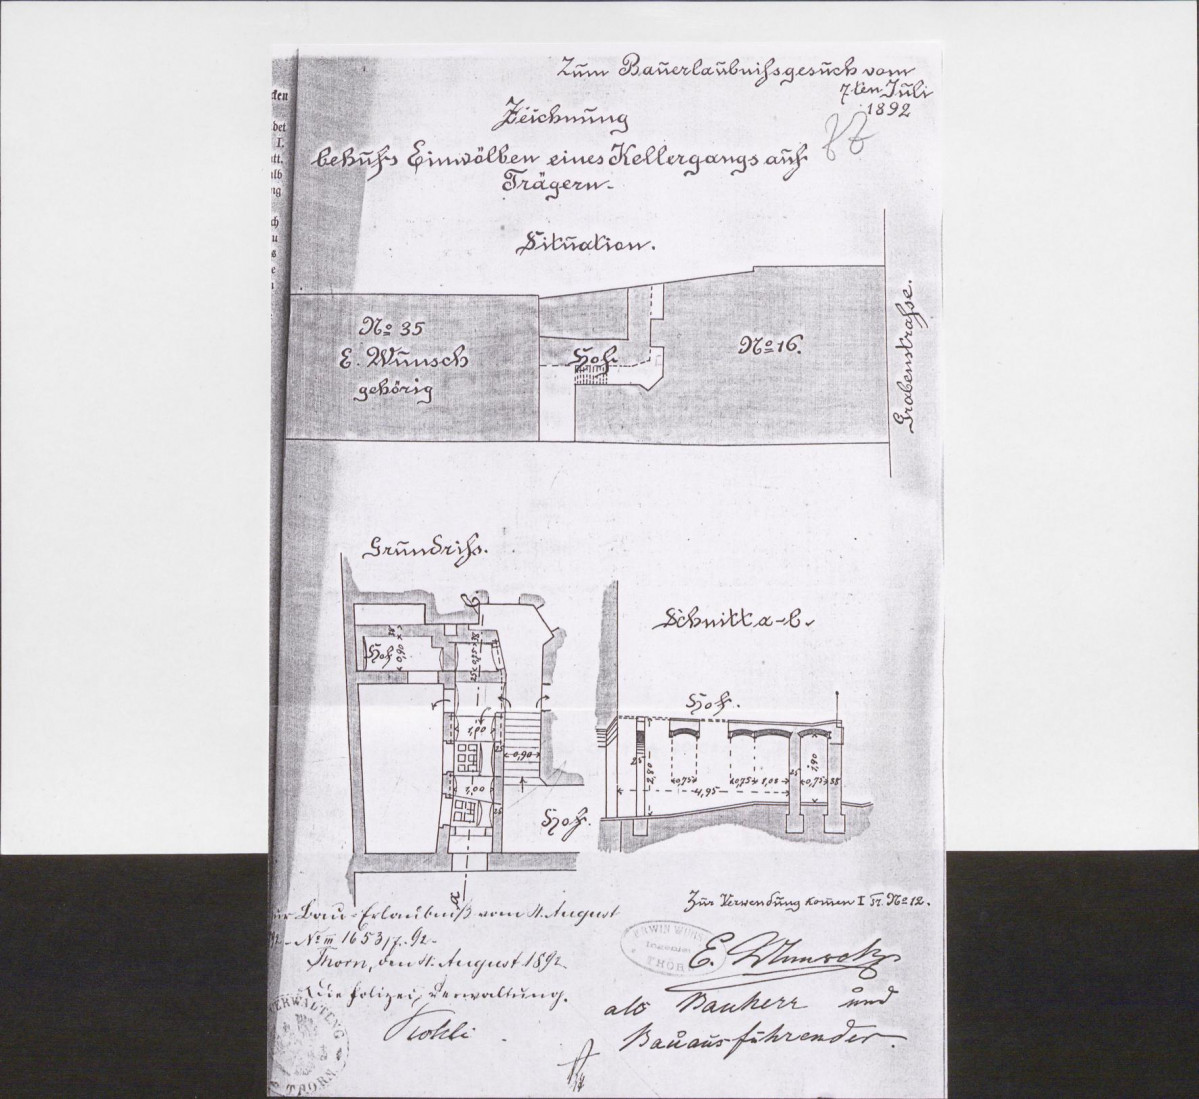 Zum Bauerlaubnißgesuch vom
7ten Juli
1892
Zeichnung
behufs Einwölben eines Kellergangs auf
Trägern.
Situation.
No 35
E. Wunsch
gehörig
Hof.
No 16.
Grabenstrasse.
Grundriß.
b.
Hof
0,90
38
0,85
25
1,00
0,90
1,00
Hof.
a
Schnitt a-b.
Hof.
2,80
0,75
0,75
1,00
25
1,90
0,75
38
4,95
Zur Verwendung komen I Tr. No 12.
Bau-Erlaubniß vom 4. August
No III 1653/7. 92.
Thorn, den 4. August 1892
Die Polizei-Verwaltung.
VERWALTUNG
THORN
ERWIN WUNSCH
INGENIEUR
THORN
E. Wunsch
als Bauherr und
Bauausführender.